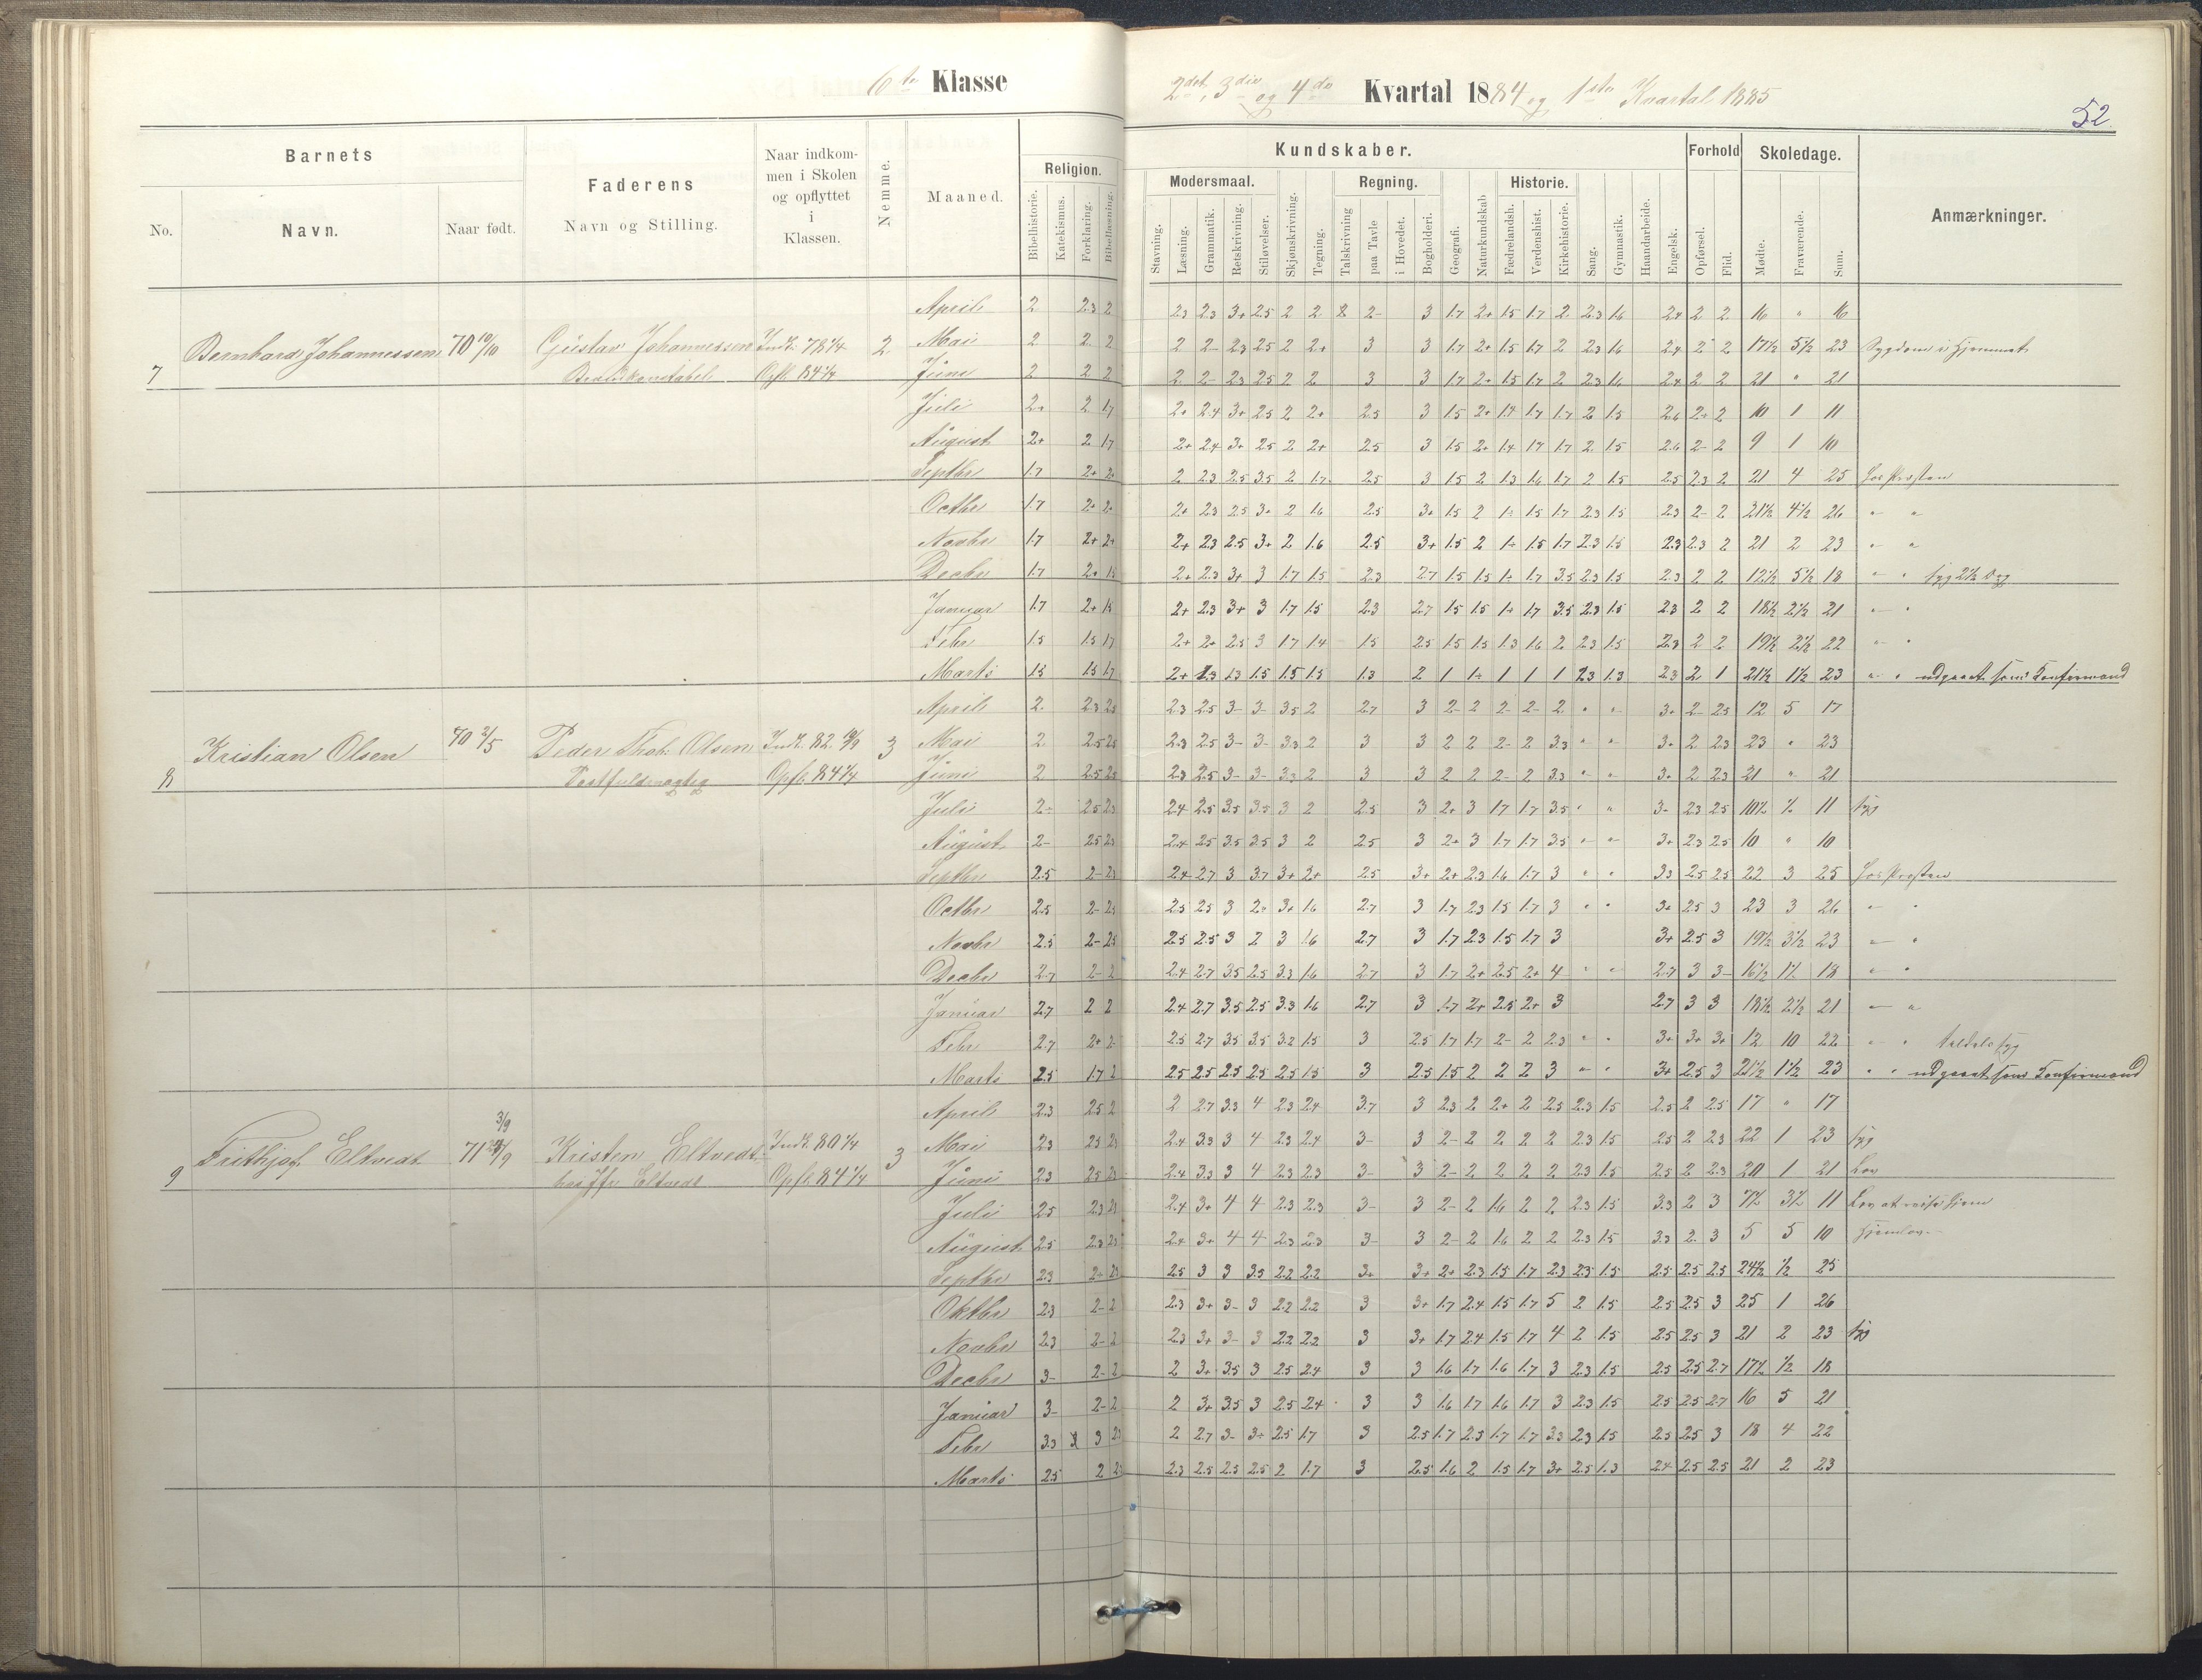 6te Klasse
2det, 3die og 4de Kvartal 1884 og 1ste Kvartal 1885
52.
Barnets
Faderens
Naar indkommen i Skolen og opflyttet i Klassen.
Nemme.
Maaned.
Religion.
Kundskaber.
Forhold
Skoledage.
Anmærkninger.
No.
Navn.
Naar født.
Navn og Stilling.
Bibelhistorie.
Katekismus.
Forklaring.
Bibellæsning.
Modersmaal.
Regning.
Historie.
Stavning.
Læsning.
Grammatik.
Retskrivning.
Stiløvelser.
Skjønskrivning.
Tegning.
Talskrivning
paa Tavle
i Hovedet.
Bogholderi.
Geografi.
Naturkundskab
Fædrelandsh.
Verdenshist.
Kirkehistorie.
Sang.
Gymnastik.
Haandarbeide.
Engelsk.
Opførsel.
Flid.
Mødte.
Fraværende.
Sum.
7 Bernhard Johannessen 70 10/10 Gustav Johannessen Indk. 78 1/4 2.
Opfl. 84 1/4
April 2 2.3 2 2.3 2.3 3+ 2.5 2 2 2 2- 3 1.7 2+ 1.5 1.7 2 2.3 1.6 2.4 2 2 16 " 16
Mai 2 2 2 2 2- 2.3 2.5 2 2+ 3 3 1.7 2+ 1.5 1.7 2 2.3 1.6 2.4 2 2 17½ 5½ 23 Sygdom i Hjemmet
Juni 2 2 2 2 2- 2.3 2.5 2 2 3 3 1.7 2+ 1.5 1.7 2 2.3 1.6 2.4 2 2 21 " 21
Juli 2+ 2 1.7 2+ 2.4 3+ 2.5 2 2+ 2.5 3 1.5 2+ 1.4 1.7 1.7 2 1.5 2.6 2- 2 10 1 11
August 2+ 2 1.7 2+ 2.4 3+ 2.5 2 2+ 2.5 3 1.5 2+ 1.4 1.7 1.7 2 1.5 2.6 2- 2 9 1 10
Septbr 1.7 2+ 2+ 2 2.3 2.5 3.5 2 1.7 2.5 3 1.5 2 1.3 1.6 1.7 2 1.5 2.5 2.3 2 21 4 25 hos Præsten
Octbr 1.7 2+ 2+ 2+ 2.3 2.5 3+ 2 1.6 2.5 3+ 1.5 2 1+ 1.5 1.7 2.3 1.5 2.3 2- 2 21½ 4½ 26 " "
Novbr 1.7 2+ 2+ 2+ 2.3 2.5 3+ 2 1.6 2.5 3+ 1.5 2 1+ 1.5 1.7 2.3 1.5 2.3 2.3 2 21 2 23 " "
Decbr 1.7 2+ 1.5 2+ 2.3 3+ 3 1.7 1.5 2.3 2.7 1.5 1.5 1+ 1.7 3.5 2.3 1.5 2.3 2 2 12½ 5½ 18 " " syg 2½ Dag
Januar 1.7 2+ 1.5 2+ 2.3 3+ 3 1.7 1.5 2.3 2.7 1.5 1.5 1+ 1.7 3.5 2.3 1.5 2.3 2 2 18½ 2½ 21 " "
Febr 1.5 1.5 1.7 2+ 2+ 2.5 3 1.7 1.4 1.5 2.5 1.5 1.5 1.3 1.6 2 2.3 1.5 2.3 2 2 19½ 2½ 22 " "
Marts 1.5 1.5 1.7 2+ 1.3 1.3 1.5 1.5 1.5 1.3 2 1 1+ 1 1 1 2.3 1.3 2.3 2 1 21½ 1½ 23 " " udgaaet som Konfirmand
8 Kristian Olsen 70 2/5 Peder Thob. Olsen Indk. 82 3
Postfuldmægtig Opfl. 84 1/4
April 2 2.3 2.5 2.3 2.5 3- 3- 3.5 2 2.7 3 2- 2 2- 2- 2 " " 3+ 2- 2.5 12 5 17
Mai 2 2.5 2.5 2.3 2.5 3- 3- 3.3 2 3 3 2 2 2- 2 3.3 " " 3+ 2 2.3 23 " 23
Juni 2 2.5 2.5 2.3 2.5 3- 3- 3.3 2 3 3 2 2 2- 2 3.3 " " 3+ 2 2.3 21 " 21
Juli 2- 2.5 2.5 2.4 2.5 3.5 3.5 3 2 2.5 3 2+ 3 1.7 1.7 3.5 " " 3- 2.3 2.5 10½ ½ 11 syg
August 2- 2.5 2.5 2.4 2.5 3.5 3.5 3 2 2.5 3 2+ 3 1.7 1.7 3.5 " " 3+ 2.3 2.5 10 " 10
Septbr 2.5 2- 2.3 2.4 2.7 3 3.7 3+ 2+ 2.5 3+ 2+ 2.3 1.6 1.7 3 " " 3.3 2.5 2.5 22 3 25 hos Præsten
Octbr 2.5 2- 2.5 2.5 2.5 3 2+ 3+ 1.6 2.7 3 1.7 2.3 1.5 1.7 3 " " 3+ 2.5 3 23 3 26 " "
Novbr 2.5 2- 2.5 2.5 2.5 3 2 3 1.6 2.7 3 1.7 2.3 1.5 1.7 3 3+ 2.5 3 19½ 3½ 23 " "
Decbr 2.7 2- 2 2.4 2.7 3.5 2.5 3.3 1.6 2.7 3 1.7 2+ 2.5 2+ 4 " " 2.7 3 3- 16½ 1½ 18 " "
Januar 2.7 2 2 2.4 2.7 3.5 2.5 3.3 1.6 2.7 3 1.7 2+ 2.5 2+ 3 2.7 3 3 18½ 2½ 21 " "
Febr 2.7 2+ 2 2.5 2.7 3.5 3.5 3.2 1.5 3 2.5 1.7 1.7 2- 2 2.3 " " 3+ 3+ 3+ 12 10 22 " " syg
Marts 2.5 1.7 2 2.5 2.5 2.5 2.5 2.5 1.5 3 2.5 1.5 2 2 2 3 " " 3+ 2.5 3 21½ 1½ 23 " " udgaaet som Konfirmand
9 Frithjof Eltvedt 71 3/9 Kristen Eltvedt Indk. 80 1/4 3
Eltvedt Opfl. 84 1/4
April 2.3 2.5 2 2 2.7 3.3 4 2.3 2.4 3.7 3 2.3 2 2+ 2 2.5 2.3 1.5 2.5 2 2.5 17 " 17
Mai 2.3 2.5 2.3 2.4 3.3 3 4 2.3 2.4 3- 3 2- 2 2 2 2 2.3 1.5 2.5 2 2.3 22 1 23 syg
Juni 2.3 2.5 2.3 2.4 3.3 3 4 2.3 2.3 3- 3 2- 2 2 2 2 2.3 1.5 2.5 2 2.3 20 1 21 Lov
Juli 2.5 2.3 2.3 2.4 3+ 4 4 2.3 2.3 3- 3 2- 2 1.6 2 2 2.3 1.5 3.3 2 3 7½ 3½ 11 Lov at reise hjem
August 2.5 2.3 2.3 2.4 3+ 4 4 2.3 2.3 3- 3 2- 2 1.6 2 2 2.3 1.5 3.3 2 3 5 5 10 Hjemlov
Septbr 2.3 2+ 2.3 2.5 3 3 3.5 2.2 2.2 3+ 3+ 2+ 2.3 1.5 1.7 2.3 2.3 1.5 2.5 2.5 2.5 24½ ½ 25
Oktbr 2.3 2- 2 2.3 3+ 3- 3 2.2 2.2 3 3+ 1.7 2.4 1.5 1.7 5 2 1.5 2.5 2.5 3 25 1 26
Novbr 2.3 2- 2 2.3 3+ 3- 3 2.2 2.2 3 3+ 1.7 2.4 1.5 1.7 4 2 1.5 2.5 2.5 3 21 2 23 syg
Decbr 3- 2- 2 2 3+ 3.5 3 2.5 2.4 3 3 1.6 1.7 1.6 1.7 3 2.3 1.5 2.5 2.5 2.7 17½ ½ 18
Januar 3- 2- 2 2 3+ 3.5 3 2.5 2.4 3 3 1.6 1.7 1.6 1.7 3 2.3 1.5 2.5 2.5 2.7 16 5 21
Febr 3.3 3 2.3 2 2.7 3- 3+ 2.5 1.7 3 2.5 1.7 2.5 1.7 1.7 3.3 2.3 1.5 2.5 2.5 3 18 4 22
Marts 2.5 2 2.3 2.3 2.5 2.5 2.5 2 1.7 3 2.5 1.6 2 1.5 1.7 3+ 2.5 1.3 2.4 2.5 2.5 21 2 23